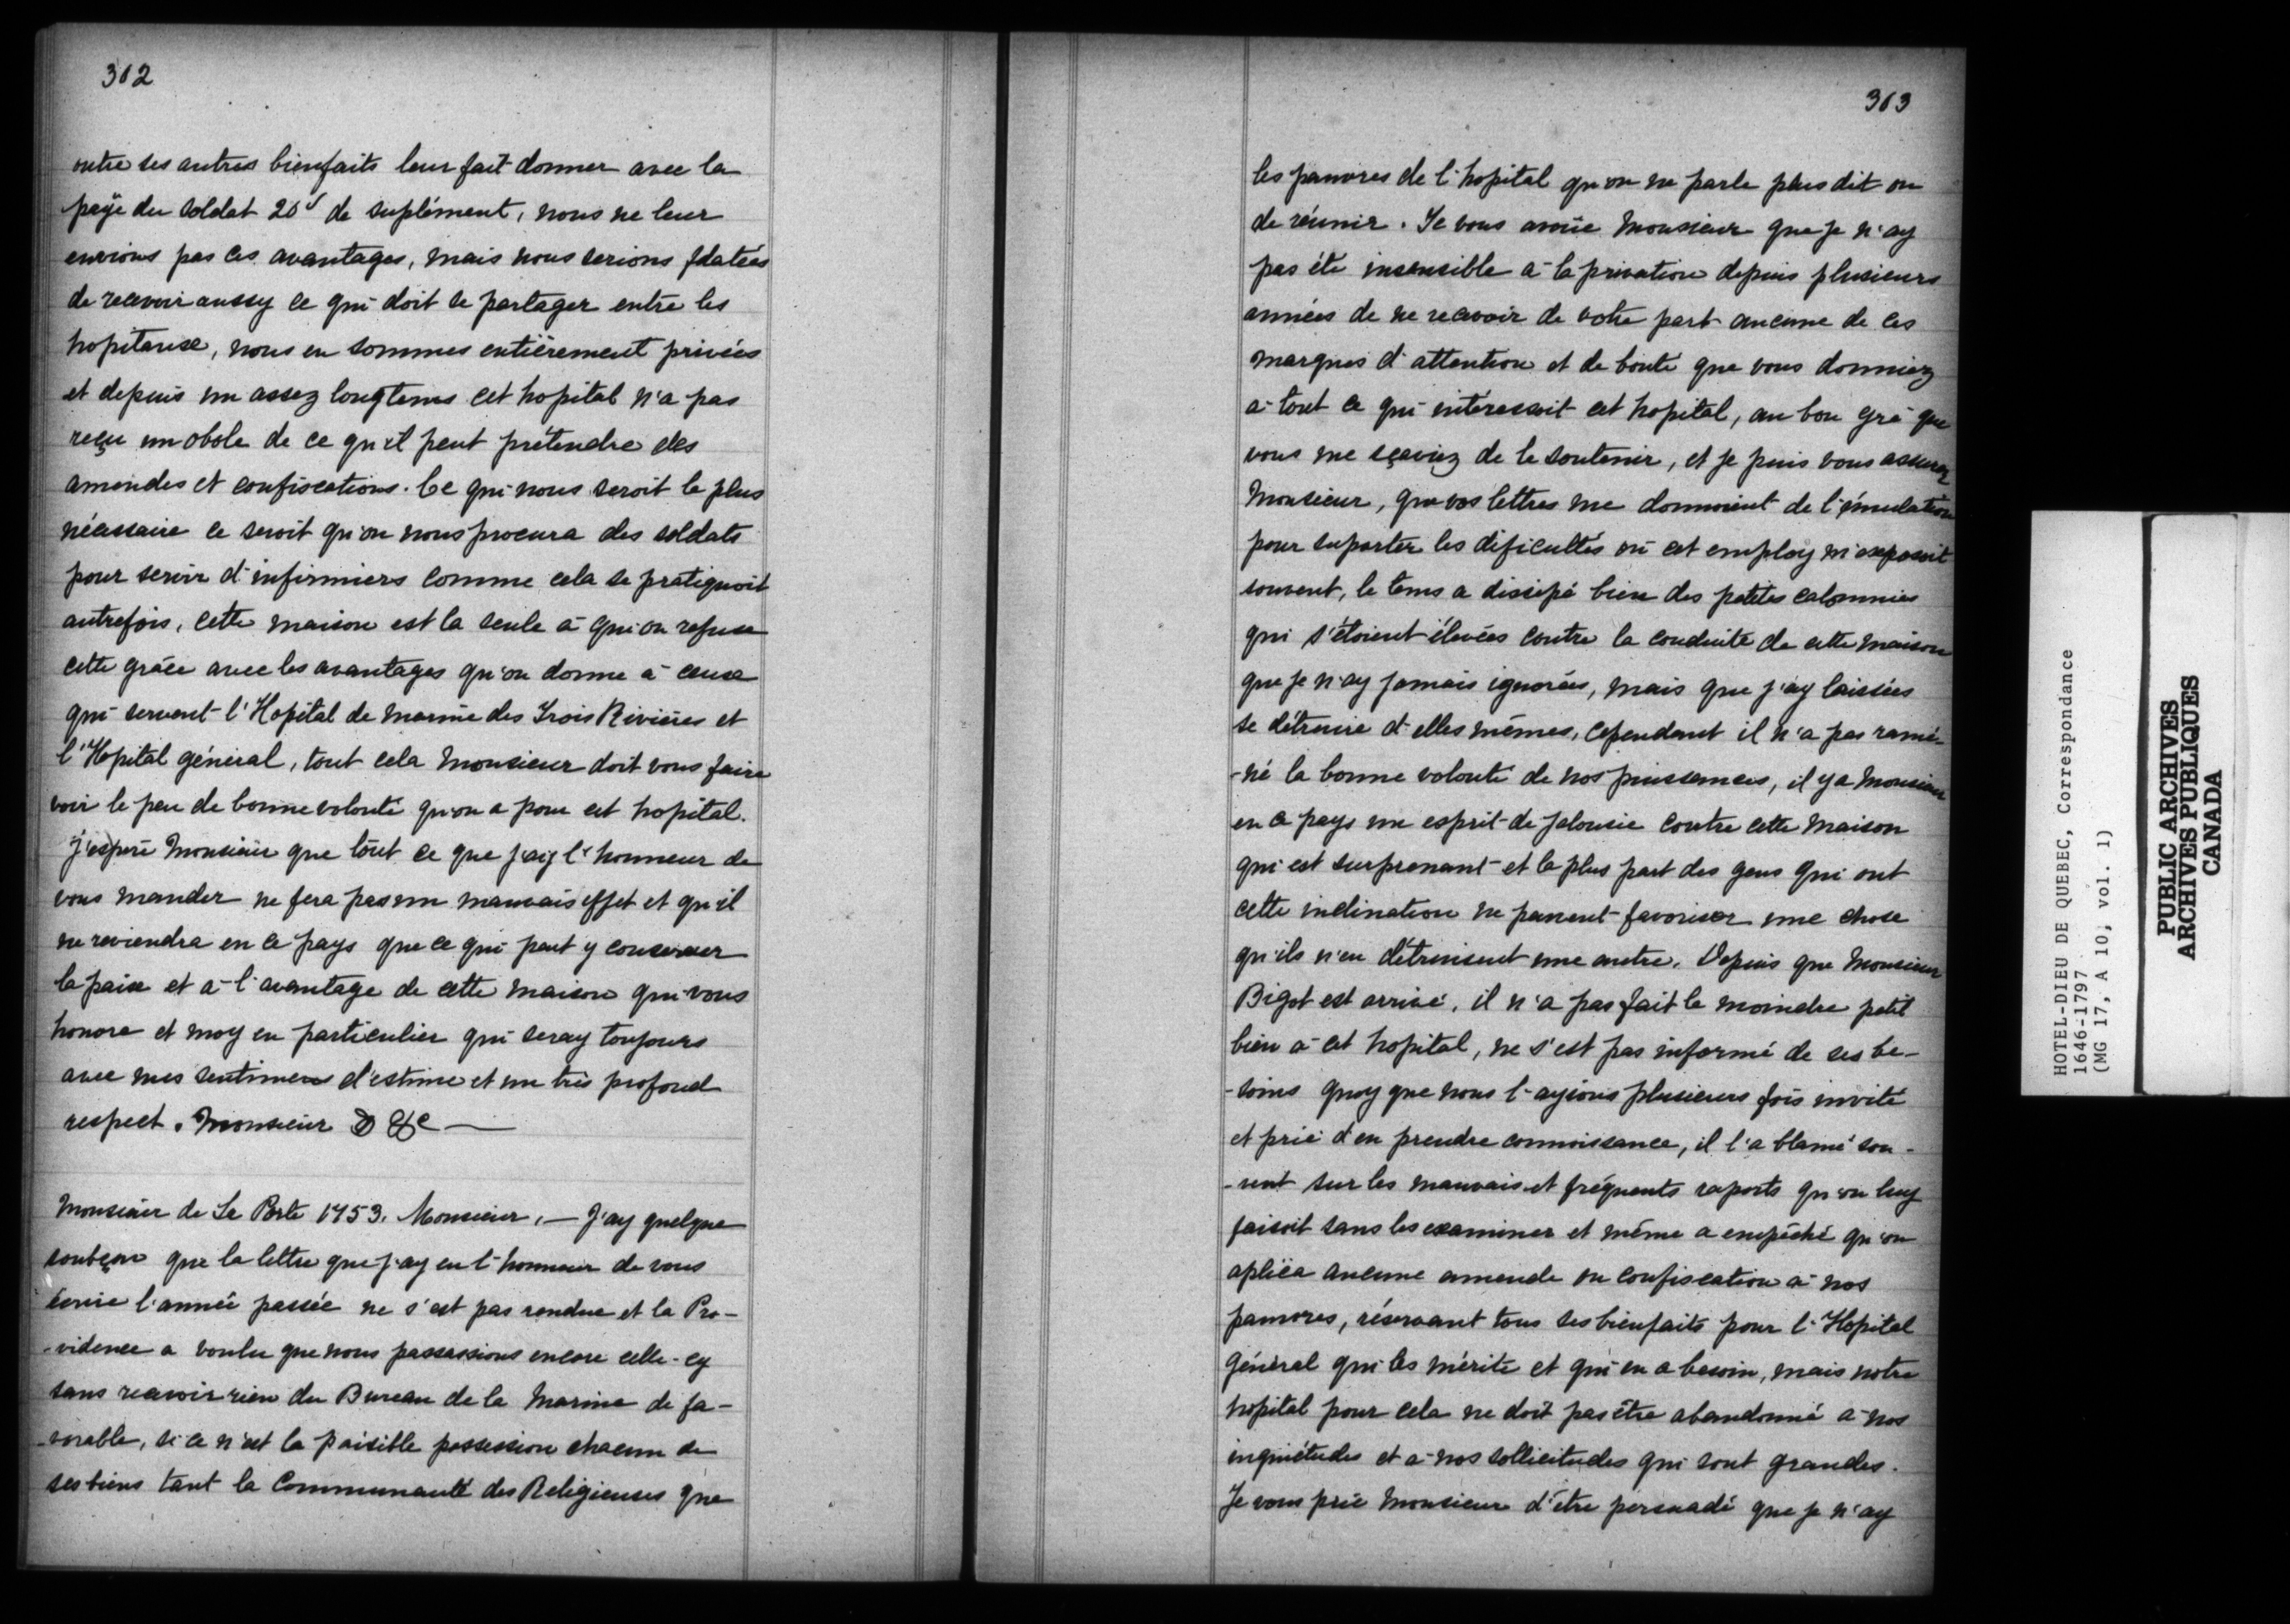 312
outre ses autres bienfaits leur fait donner avec la
païe du soldat 20ˢ de suplément, nous ne leur
envions pas ces avantages, mais nous serions flatées
de recevoir aussy ce qui doit se partager entre les
hopitaux, nous en sommes entièrement privées
et depuis un assez longtems cet hopital n'a pas
reçu un obole de ce qu'il peut prétendre des
amendes et confiscations. Ce qui nous seroit le plus
nécessaire ce seroit qu'on nous procura des soldats
pour servir d'infirmiers comme cela se pratiquoit
autrefois, cette maison est la seule à qui on refuse
cette grâce avec les avantages qu'on donne à ceux
qui servent l'Hopital de marine des Trois Rivières et
l'Hopital général, tout cela Monsieur doit vous faire
voir le peu de bonne volonté qu'on a pour cet hopital.
J'espère Monsieur que tout ce que j'ay l'honneur de
vous mander ne fera pas un mauvais effet et qu'il
ne reviendra en ce pays que ce qui peut y conserver
la paix et à l'avantage de cette maison qui vous
honore et moy en particulier qui seray toujours
avec mes sentimens d'estime et un très profond
respect. Monsieur &c —
Monsieur de La Porte 1753. Monsieur, — J'ay quelque
soubçon que la lettre que j'ay eu l'honneur de vous
écrire l'année passée ne s'est pas rendue et la Pro-
-vidence a voulu que nous passassions encore celle-cy
sans recevoir rien du Bureau de la Marine de fa-
-vorable, si ce n'est la paisible possession chacun de
ses biens tant la Communauté des Religieuses que
313
les pauvres de l'hopital qu'on ne parle plus dit on
de réunir. Je vous avoüe Monsieur que je n'ay
pas été insensible à la privation depuis plusieurs
années de ne recevoir de votre part aucune de ces
marques d'attention et de bonté que vous donniez
à tout ce qui intéressoit cet hopital, au bon gré que
vous me sçaviez de le soutenir, et je puis vous assurer
Monsieur, que vos lettres me donnoient de l'émulation
pour suporter les dificultés où cet employ m'exposoit
souvent, le tems a dissipé bien des petites calomnies
qui s'étoient élevées contre la conduite de cette maison
que je n'ay jamais ignorées, mais que j'ay laissées
se détruire d'elles mêmes, cependant il n'a pas ramé-
-né la bonne volonté de nos puissances, il y a Monsieur
en ce pays un esprit de jalousie contre cette maison
qui est surprenant et la plus part des gens qui ont
cette inclination ne peuvent favoriser une chose
qu'ils n'en détruisent une autre. Depuis que Monsieur
Bigot est arrivé, il n'a pas fait le moindre petit
bien à cet hopital, ne s'est pas informé de ses be-
-soins quoy que nous l'ayions plusieurs fois invité
et prié d'en prendre connoissance, il l'a blamé sou-
-vent sur les mauvais et fréquents raports qu'on luy
faisoit sans les examiner et même a empêché qu'on
aplica aucune amende ou confiscation à nos
pauvres, réservant tous ses bienfaits pour l'Hopital
Général qui les mérite et qui en a besoin, mais notre
hopital pour cela ne doit pas être abandonné à nos
inquiétudes et à nos sollicitudes qui sont grandes.
Je vous prie Monsieur d'être persuadé que je n'ay
HOTEL-DIEU DE QUEBEC, Correspondance
1646-1797
(MG 17, A 10, vol. 1)
PUBLIC ARCHIVES
ARCHIVES PUBLIQUES
CANADA